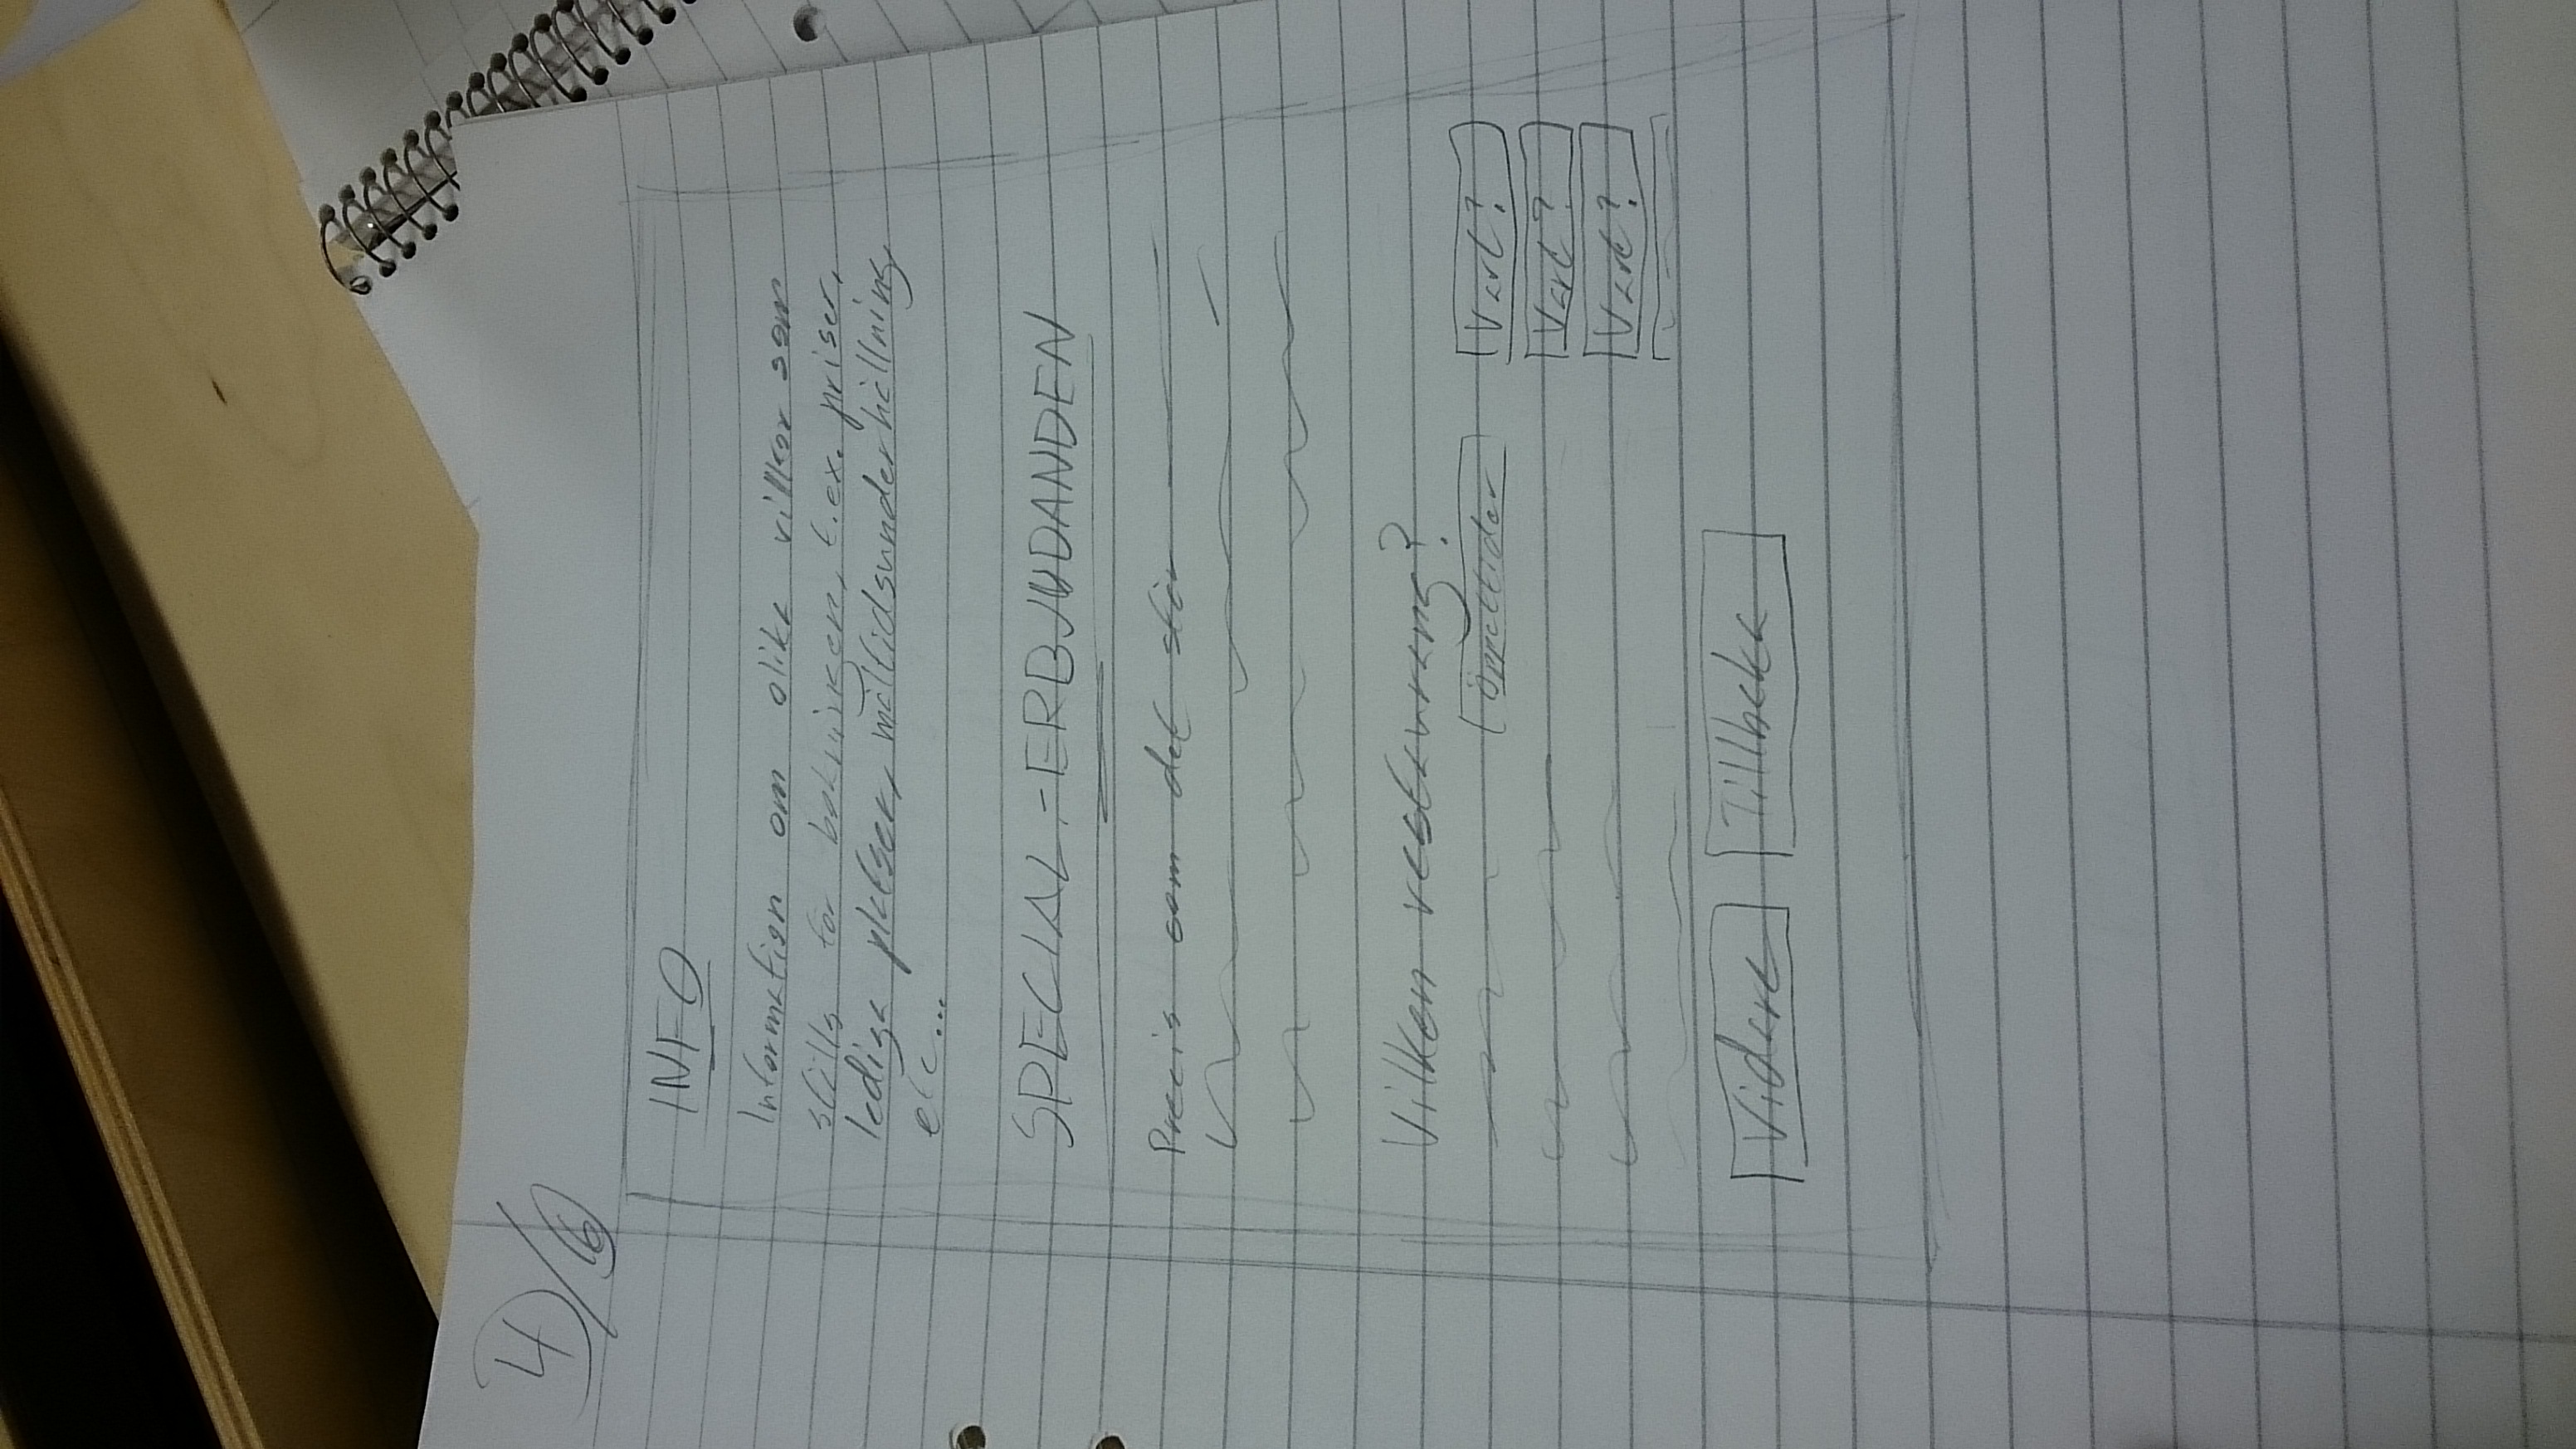 4/6
INFO
Information om olika villkor som
ställs för bokningen, t.ex. priser,
lediga platser, måltidsunderhållning,
etc...
SPECIAL-ERBJUDANDEN
Precis som det står
Vilken restaurang?
Öppettider Vart?
Vart?
Vart?
Vidare Tillbaka